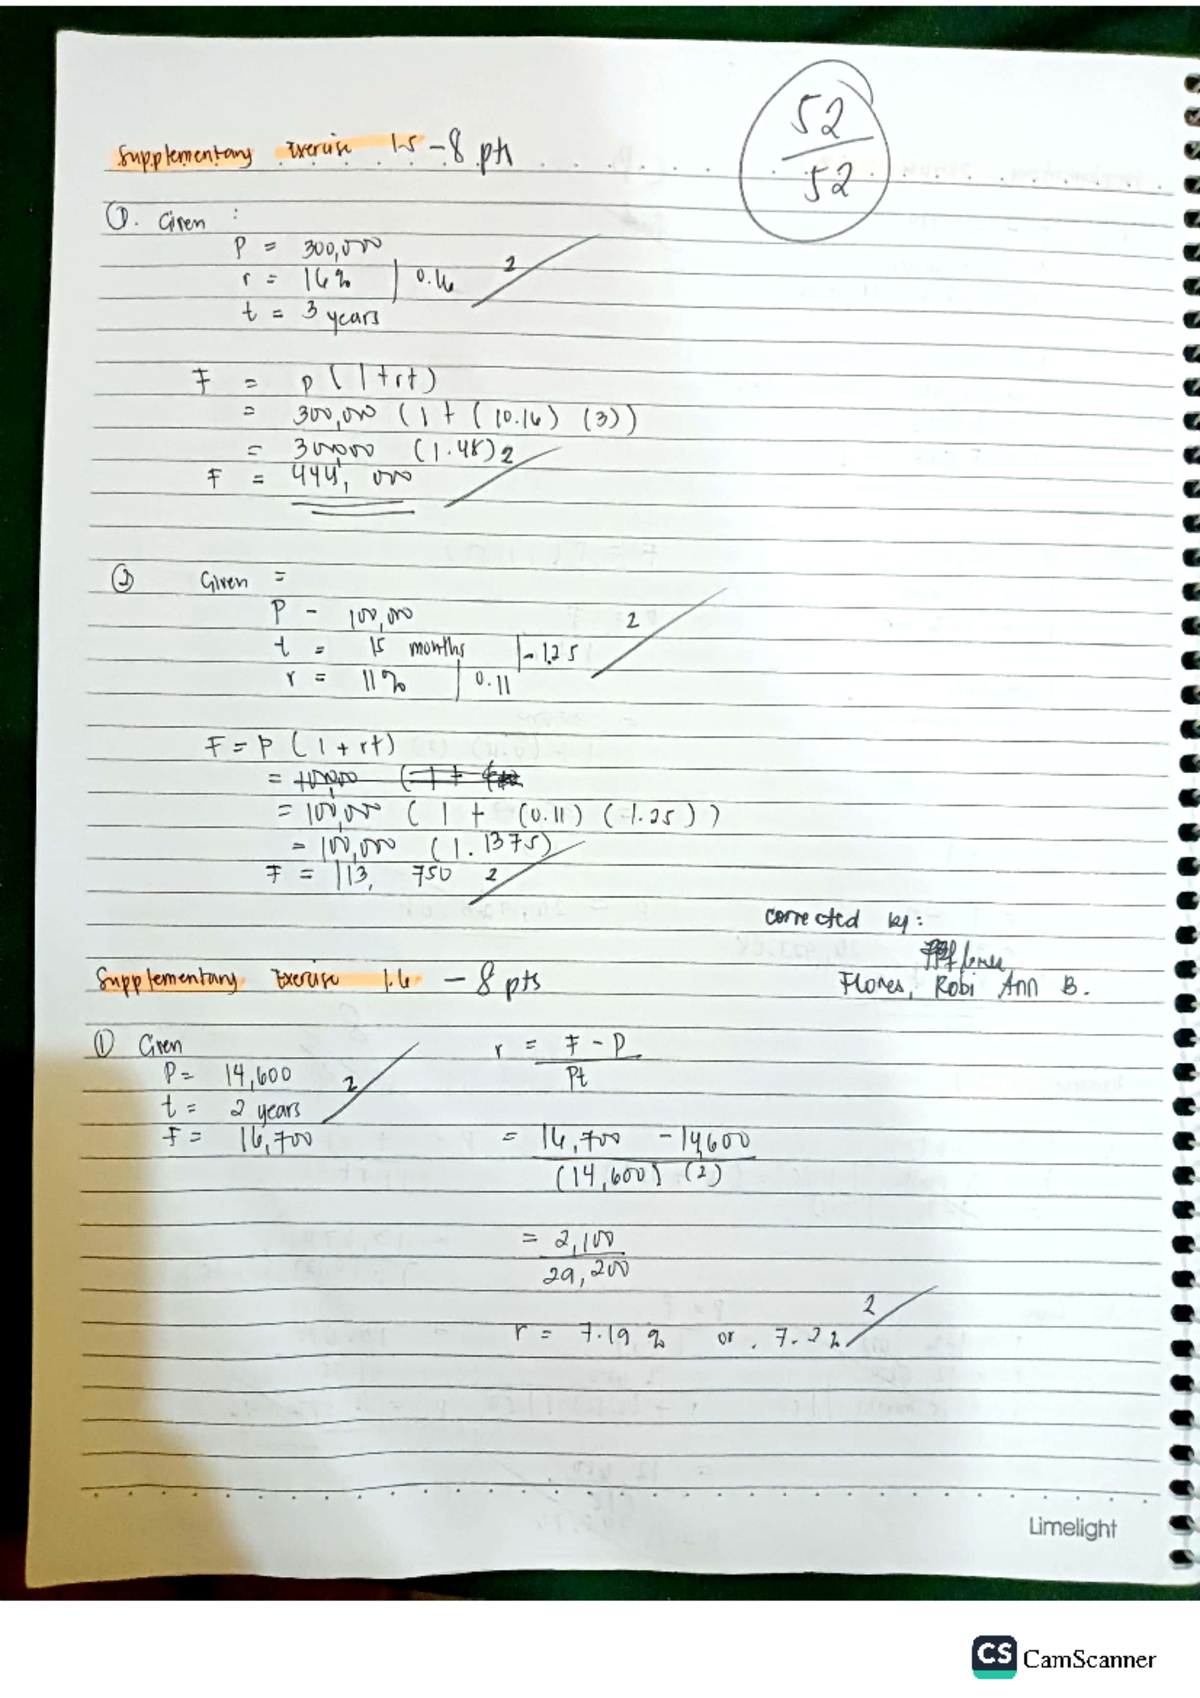 Supplementary Exercise 1.5 - 8 pts
52
52
①. Given :
P = 300,000
r = 16% | 0.16
2
t = 3 years
F = P (1 + rt)
= 300,000 (1 + (10.16) (3))
= 300,000 (1.48) 2
F = 444, 000
② Given =
P - 100,000
2
t = 15 months | - 1.25
r = 11% | 0.11
F = P (1 + rt)
= 100,000 ( 1 + (0.11) (1.25) )
= 100,000 (1.1375)
F = 113, 750 2
Corrected by:
Flores, Robi Ann B.
Supplementary Exercise 1.6 - 8 pts
① Given
r = F - P
Pt
P = 14,600
2
t = 2 years
F = 16,700
= 16,700 - 14,600
(14,600) (2)
= 2,100
29,200
2
r = 7.19 % or . 7.2%
Limelight
CS CamScanner